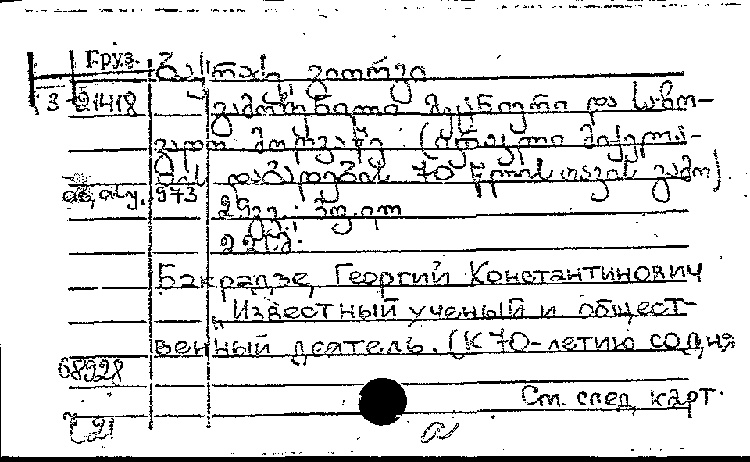 Груз. ბაქრაძე, გიორგი
3-21418 გამოჩენილი მეცნიერი და საზო-
გადო მოღვაწე. (
დაბადების 70 წლისთავის გამო).
973
29 გვ.;
22 სმ.
Бакрадзе, Георгий Константинович
„Известный ученый и общест-
венный деятель. (К 70-летию со дня
68928
См. след. карт.